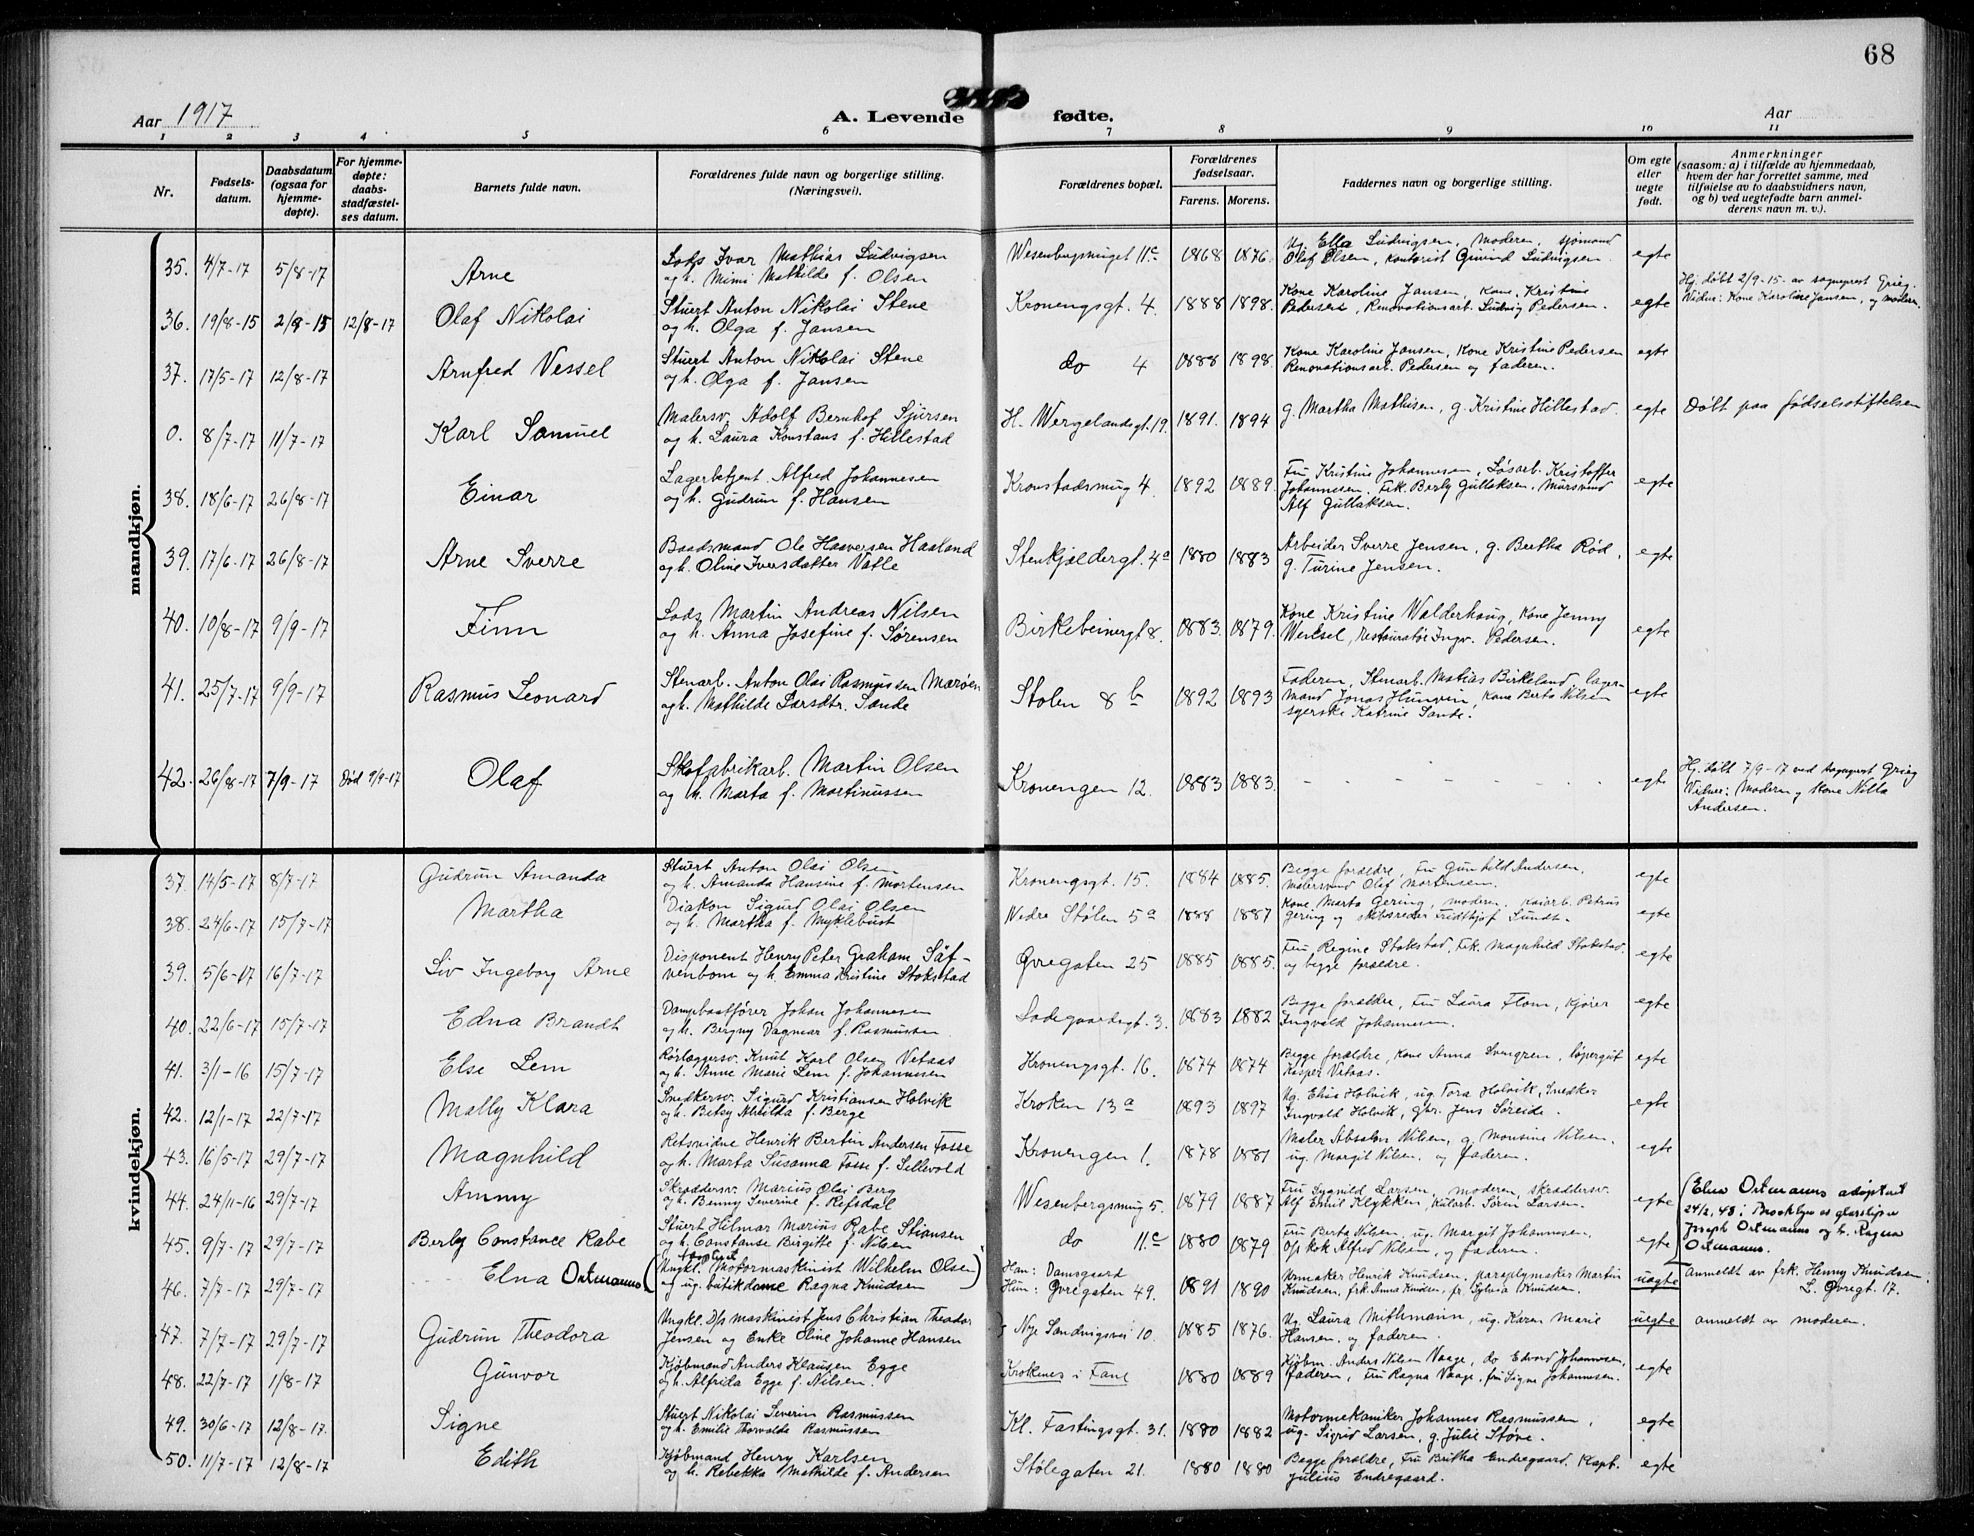 68
Aar 1917
A. Levende fødte.
Aar
1 2 3 4 5 6 7 8 9 10 11
Nr.
Fødsels-
datum.
Daabsdatum
(ogsaa for
hjemme-
døpte).
For hjemme-
døpte:
daabs-
stadfæstel-
ses datum.
Barnets fulde navn.
Forældrenes fulde navn og borgerlige stilling.
(Næringsvei).
Forældrenes bopæl.
Forældrenes
fødselsaar.
Farens. Morens.
Faddernes navn og borgerlige stilling.
Om egte
eller
uegte
født.
Anmerkninger
(saasom: a) i tilfælde av hjemmedaab,
hvem der har forrettet samme, med
tilføielse av to daabsvidners navn,
og b) ved uegtefødte barn anmel-
derens navn m. v.).
mandkjøn.
35. 4/7-17 5/8-17 Arne
Lods Ivar Mathias Ludvigsen
og h. Mimi Mathilde f. Olsen
Wesenbergsmuget 11c 1868 1876.
Ug. Ella Ludvigsen, moderen, sjømand
Olaf Olsen, kontorist Eivind Ludvigsen.
egte
36. 19/8-15 2/9-15 12/8-17 Olaf Nikolai
Stuert Anton Nikolai Stene
og h. Olga f. Jansen
Kronengsgt. 4. 1888 1898.
Kone Karoline Jansen, kone Kristine
Pedersen, Renovationsarb. Ludvig Pedersen.
egte
Hj. døbt 2/9-15 av sogneprest Grieg.
Vidne: Kone Karoline Jansen, og moderen.
37. 17/5-17 12/8-17 Arnfred Vessel
Stuert Anton Nikolai Stene
og h. Olga f. Jansen
do 4 1888 1898.
Kone Karoline Jansen, Kone Kristine Pedersen
Renovationsarb. Pedersen og faderen.
egte
0. 8/7-17 11/7-17 Karl Samuel
Malersv. Adolf Bernhof Sjursen
og h. Laura Konstans f. Hillestad
H. Wergelandsgt. 19. 1891. 1894
g. Martha Mathisen, g. Kristine Hillestad.
egte
Døbt paa fødselsstiftelsen
38. 18/6-17 26/8-17 Einar
Lagerbetjent Alfred Johannesen
og h. Gudrun f. Hansen
Kronstadsmug 4. 1892 1889.
Fru Kristine Johannesen, Løsarb. Kristoffer
Johannesen, Frk. Berly Gullaksen, Mursvend
Alf Gullaksen.
egte
39. 17/6-17 26/8-17 Arne Sverre
Baadsmand Ole Haaversen Haaland
og h. Oline Iversdatter Valle
Stenkjeldergt. 4a 1880 1883
Arbeider Sverre Jensen, g. Bertha Rød,
g. Turine Jensen.
egte
40. 10/8-17 9/9-17 Finn
Lods Martin Andreas Nilsen
og h. Anna Josefine f. Sørensen
Birkebeinergt 8. 1883. 1879.
Kone Kristine Walderhaug, Kone Jenny
Wentsel, restauratør Ingv. Pedersen.
egte
41. 25/7-17 9/9-17 Rasmus Leonard
Stenarb. Anton Olai Rasmussen Marøen
og h. Mathilde Larsdtr. Sande
Stølen 8 b 1892 1893
Faderen, Stenarb. Matias Birkeland, lager-
mand Jonas Hunvin, kone Berta Nilsen
syerske Katrine Sande.
egte
42. 26/8-17 7/9-17 Død 9/9-17 Olaf
Skofabrikarb. Martin Olsen
og h. Marta f. Martinussen
Kronengen 12. 1883 1883.
- - - - - -
egte
Hj. døbt 7/9-17 ved sogneprest Grieg
Vidner: Modern og kone Nilla
Andersen.
kvindekjøn.
37. 14/5-17 8/7-17 Gudrun Amanda
Stuert Anton Olai Olsen
og h. Amanda Hansine f. Mortensen
Kronengsgt. 15. 1884 1885.
Begge forældre, Fru Gunhild Andersen,
Malersvend Olaf Mortensen.
egte
38. 24/6-17 15/7-17 Martha
Diakon Sigurd Olai Olsen
og h. Martha f. Myklebust
Nedre Stølen 5a 1888 1887
Kone Marta Gering, moderen, kaiarb. Petrus
Gering og skibsreder Fridthjof Lundt.
egte
39. 5/6-17 16/7-17 Liv Ingeborg Arne
Disponent Henry Peter Graham Säf-
venbom og h. Emma Kristine Stokstad
Øvregaten 25 1885 1885.
Fru Regine Stokstad, frk. Magnhild Stokstad.
og begge forældre.
egte
40. 22/6-17 15/7-17 Edna Brandt
Dampbaatfører Johan Johannesen
og h. Bergny Dagmar f. Rasmussen
Ladegaardsgt. 3. 1883 1882
Begge forældre, Fru Laura Flom, Kjører
Ingvald Johannesen.
egte
41. 3/1-16 15/7-17 Else Lem
Rørlæggersv. Knut Karl Olsen Vetaas
og h. Anne Marie Lem f. Johannesen
Kronengsgt. 16. 1874 1874
Begge forældre, kone Anna Svengren, løpergut
Kasper Vetaas.
egte
42. 12/1-17 22/7-17 Mally Klara
Snedkersv. Sigurd Kristiansen Holvik
og h. Betsy Milda f. Berge
Kroken 13a 1893 1897
Ug. Elise Holvik, ug. Tora Holvik, Snedker
Ingvald Holvik, gbr. Jens Søreide.
egte
43. 16/5-17 29/7-17 Magnhild
Retsvidne Henrik Bertin Andersen Fosse
og h. Marta Susanna Fosse f. Sellevold
Kronengen 1. 1878 1881
Maler Absalon Nilsen, g. Monsine Nilsen,
ug. Margit Nilsen, og faderen.
egte
44. 24/11-16 29/7-17 Ammy
Skræddersv. Marius Olai Berg
og h. Benny Severine f. Refsdal
Wesenbergsmug 5. 1879 1887
Fru Sygnild Larsen, moderen, skræddersv.
Alf Emil Klykken, kularb. Søren Larsen.
egte
45. 9/7-17 29/7-17 Berly Constance Rabe
Stuert Hilmar Marius Rabe Stiansen
og h. Constanse Birgitte f. Nilsen
do 11c 1880 1879
Fru Berta Nilsen, ug. Margit Johannesen,
d/s kok Alfred Nilsen, og faderen.
egte
46. 7/7-17 29/7-17 Elna Ortmanns
(Ungkl. Motormaskinist Wilhelm Olsen
og ug. butikdame Ragna Knudsen)
Han: Damsgaard
Hun: Øvregaten 49. 1891 1890
Urmaker Henrik Knudsen, paraplymaker Martin
Knudsen, frk. Anna Knudsen, fr. Sylvia Knudsen.
uegte
(Elna Ortmanns adoptert
24/2, 43 i Brooklyn av glassliper
Joseph Ortmanns og h. Ragna
Ortmanns.
Anmeldt av frk. Henny Knudsen
L. Øvregt. 17.
47. 7/7-17 29/7-17 Gudrun Theodora
Ungkl. D/s maskinist Jens Christian Theodor
Jensen og Enke Oline Johanne Hansen
Nye Sandvigsvei 10. 1885 1876.
Ug. Laura Mithmann, ug. Karen Marie
Hansen, og faderen.
uegte
anmeldt av moderen.
48. 22/7-17 1/8-17 Gunvor
Kjøbmand Anders Klausen Egge
og h. Alfrida Egge f. Nilsen.
Krokenes i Fane 1880 1889
Kjøbm. Anders Nilsen Vaage, do Edvard Johannesen,
faderen, Fru Ragna Vaage, fru Signe Johannesen.
egte
49. 30/6-17 12/8-17. Signe
Stuert Nikolai Severin Rasmussen
og h. Emilie Thorvalda Rasmussen
Kl. Fastingsgt. 31. 1880 1882
Motormekaniker Johannes Rasmussen,
ug. Sigrid Larsen, g. Julie Støve.
egte
50. 11/7-17 12/8-17 Edith
Kjøbmand Henry Karlsen
og h. Rebekka Mathilde f. Andersen
Stølegaten 21. 1880 1880
Begge forældre, Fru Britha Endregaard, Kapt.
Julius Endregaard.
egte